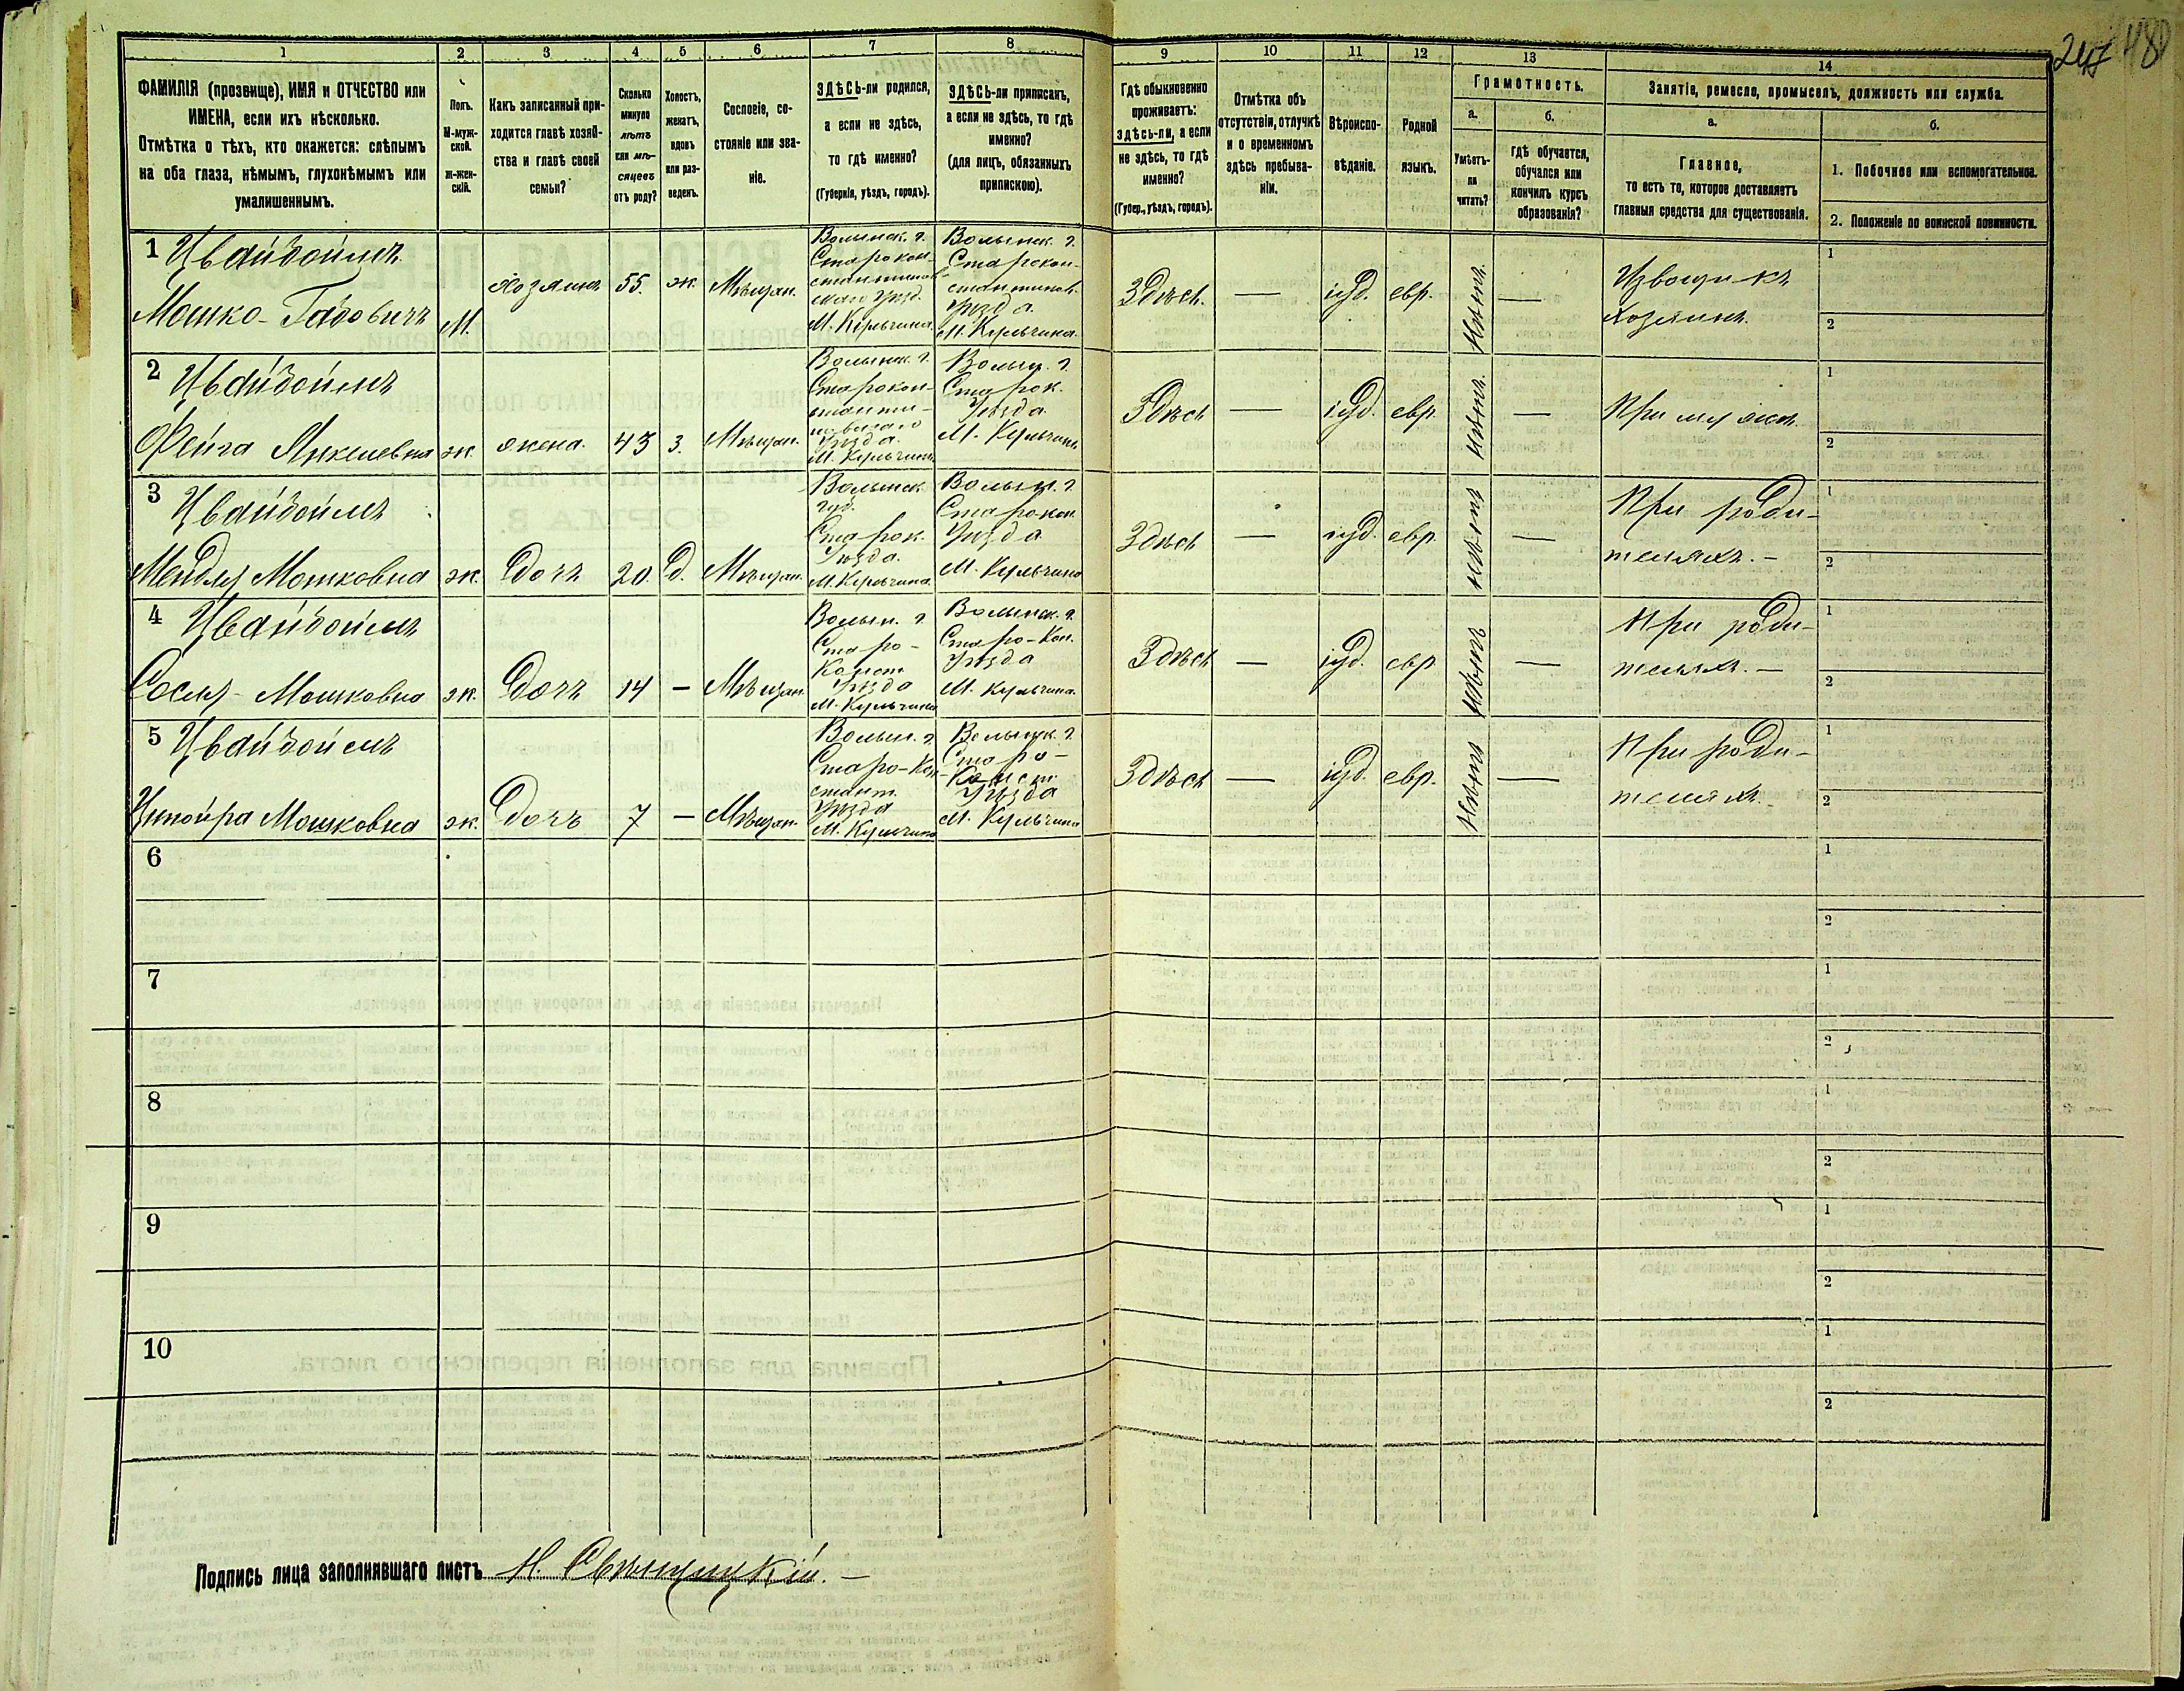 247 480
1 2 3 4 5 6 7 8 9 10 11 12 13 14
ФАМИЛІЯ (прозвище), ИМЯ и ОТЧЕСТВО или
ИМЕНА, если ихъ нѣсколько.
Отмѣтка о тѣхъ, кто окажется: слѣпымъ
на оба глаза, нѣмымъ, глухонѣмымъ или
умалишеннымъ.
Полъ.
М-муж-
ской.
Ж-жен-
скій.
Какъ записанный при-
ходится главѣ хозяй-
ства и главѣ своей
семьи?
Сколько
минуло
лѣтъ
или мѣ-
сяцевъ
отъ роду?
Холостъ,
женатъ,
вдовъ
или раз-
веденъ.
Сословіе, со-
стояніе или зва-
ніе.
ЗДѢСЬ-ли родился,
а если не здѣсь,
то гдѣ именно?
(Губернія, уѣздъ, городъ).
ЗДѢСЬ-ли приписанъ,
а если не здѣсь, то гдѣ
именно?
(для лицъ, обязанныхъ
припискою).
Гдѣ обыкновенно
проживаетъ:
здѣсь-ли, а если
не здѣсь, то гдѣ
именно?
(Губер., уѣздъ, городъ).
Отмѣтка объ
отсутствіи, отлучкѣ
и о временномъ
здѣсь пребыва-
ніи.
Вѣроиспо-
вѣданіе.
Родной
языкъ.
Грамотность.
а.
Умѣетъ-
ли
читать?
б.
гдѣ обучается,
обучался или
кончилъ курсъ
образованія?
Занятіе, ремесло, промыселъ, должность или служба.
а.
Главное,
то есть то, которое доставляетъ
главныя средства для существованія.
б.
1. Побочное или вспомогательное.
2. Положеніе по воинской повинности.
1 Цвайбоймъ
Мошко-Габовичъ
М.
хозяинъ
55.
ж.
Мѣщан.
Волынск. г.
Старокон-
стантинов-
скаго Уѣзд.
М. Кульчина.
Волынск. г.
Старокон-
стантинов.
Уѣзда.
М. Кульчина.
Здѣсь.
—
іуд.
евр.
—
Извощикъ
хозяинъ.
1
2
2 Цвайбоймъ
Фейга Янкелевна
ж.
жена.
43
З.
Мѣщан.
Волынск. г.
Старокон-
станти-
новскаго
Уѣзда.
М. Кульчина
Волын. г.
Старок.
Уѣзда.
М. Кульчина
Здѣсь
—
іуд.
евр
—
При мужѣ
1
2
3 Цвайбоймъ
Мендля Мошковна
ж.
дочь
20.
д.
Мѣщан.
Волынск.
губ.
Старок.
Уѣзда.
М. Кульчина.
Волын. г.
Старокон.
Уѣзда
М. Кульчина
Здѣсь
—
іуд.
евр.
—
При роди-
теляхъ. —
1
2
4 Цвайбоймъ
Сосля-Мошковна
ж.
дочь
14
—
Мѣщан.
Волын. г
Старо-
Конст.
Уѣзда
М. Кульчина
Волынск. г.
Старо-Кон.
Уѣзда
М. Кульчина.
Здѣсь
—
іуд.
евр
—
При роди-
теляхъ. —
1
2
5 Цвайбоймъ
Мошковна
ж.
дочь
7
—
Мѣщан.
Волын. г.
Старо-Кон-
стант.
Уѣзда
М. Кульчина
Волынск. г.
Старо-
Конст.
Уѣзда
М. Кульчина
Здѣсь
—
іуд.
евр.
—
При роди-
теляхъ.
1
2
6
1
2
7
1
2
8
1
2
9
1
2
10
1
2
Подпись лица заполнявшаго листъ Н. Свѣнцицкій. —